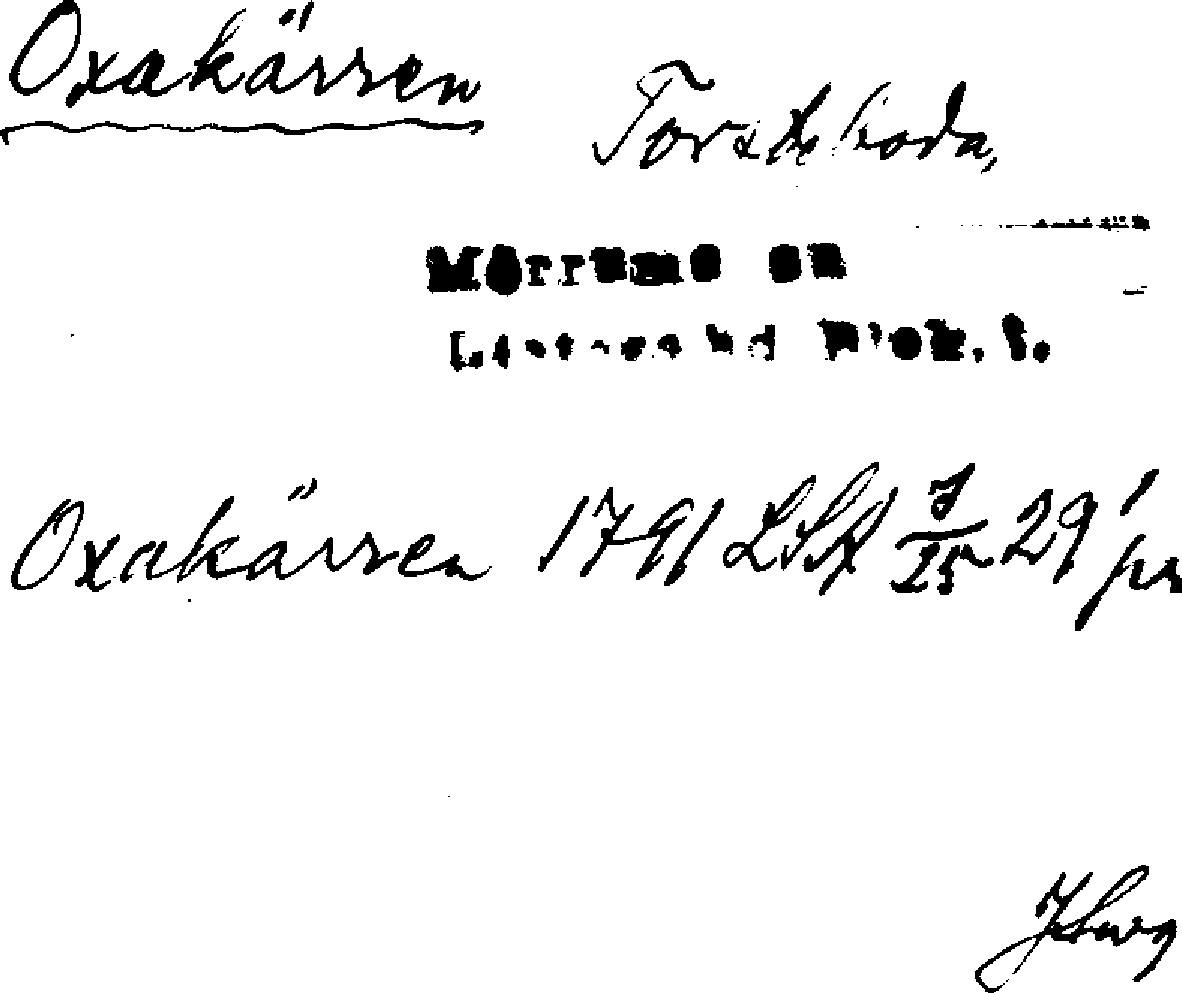 Oxakärren
Torstaboda,
Mörrums sn
Listers hdBlek. l.
Oxakärren 1791 LSA 29